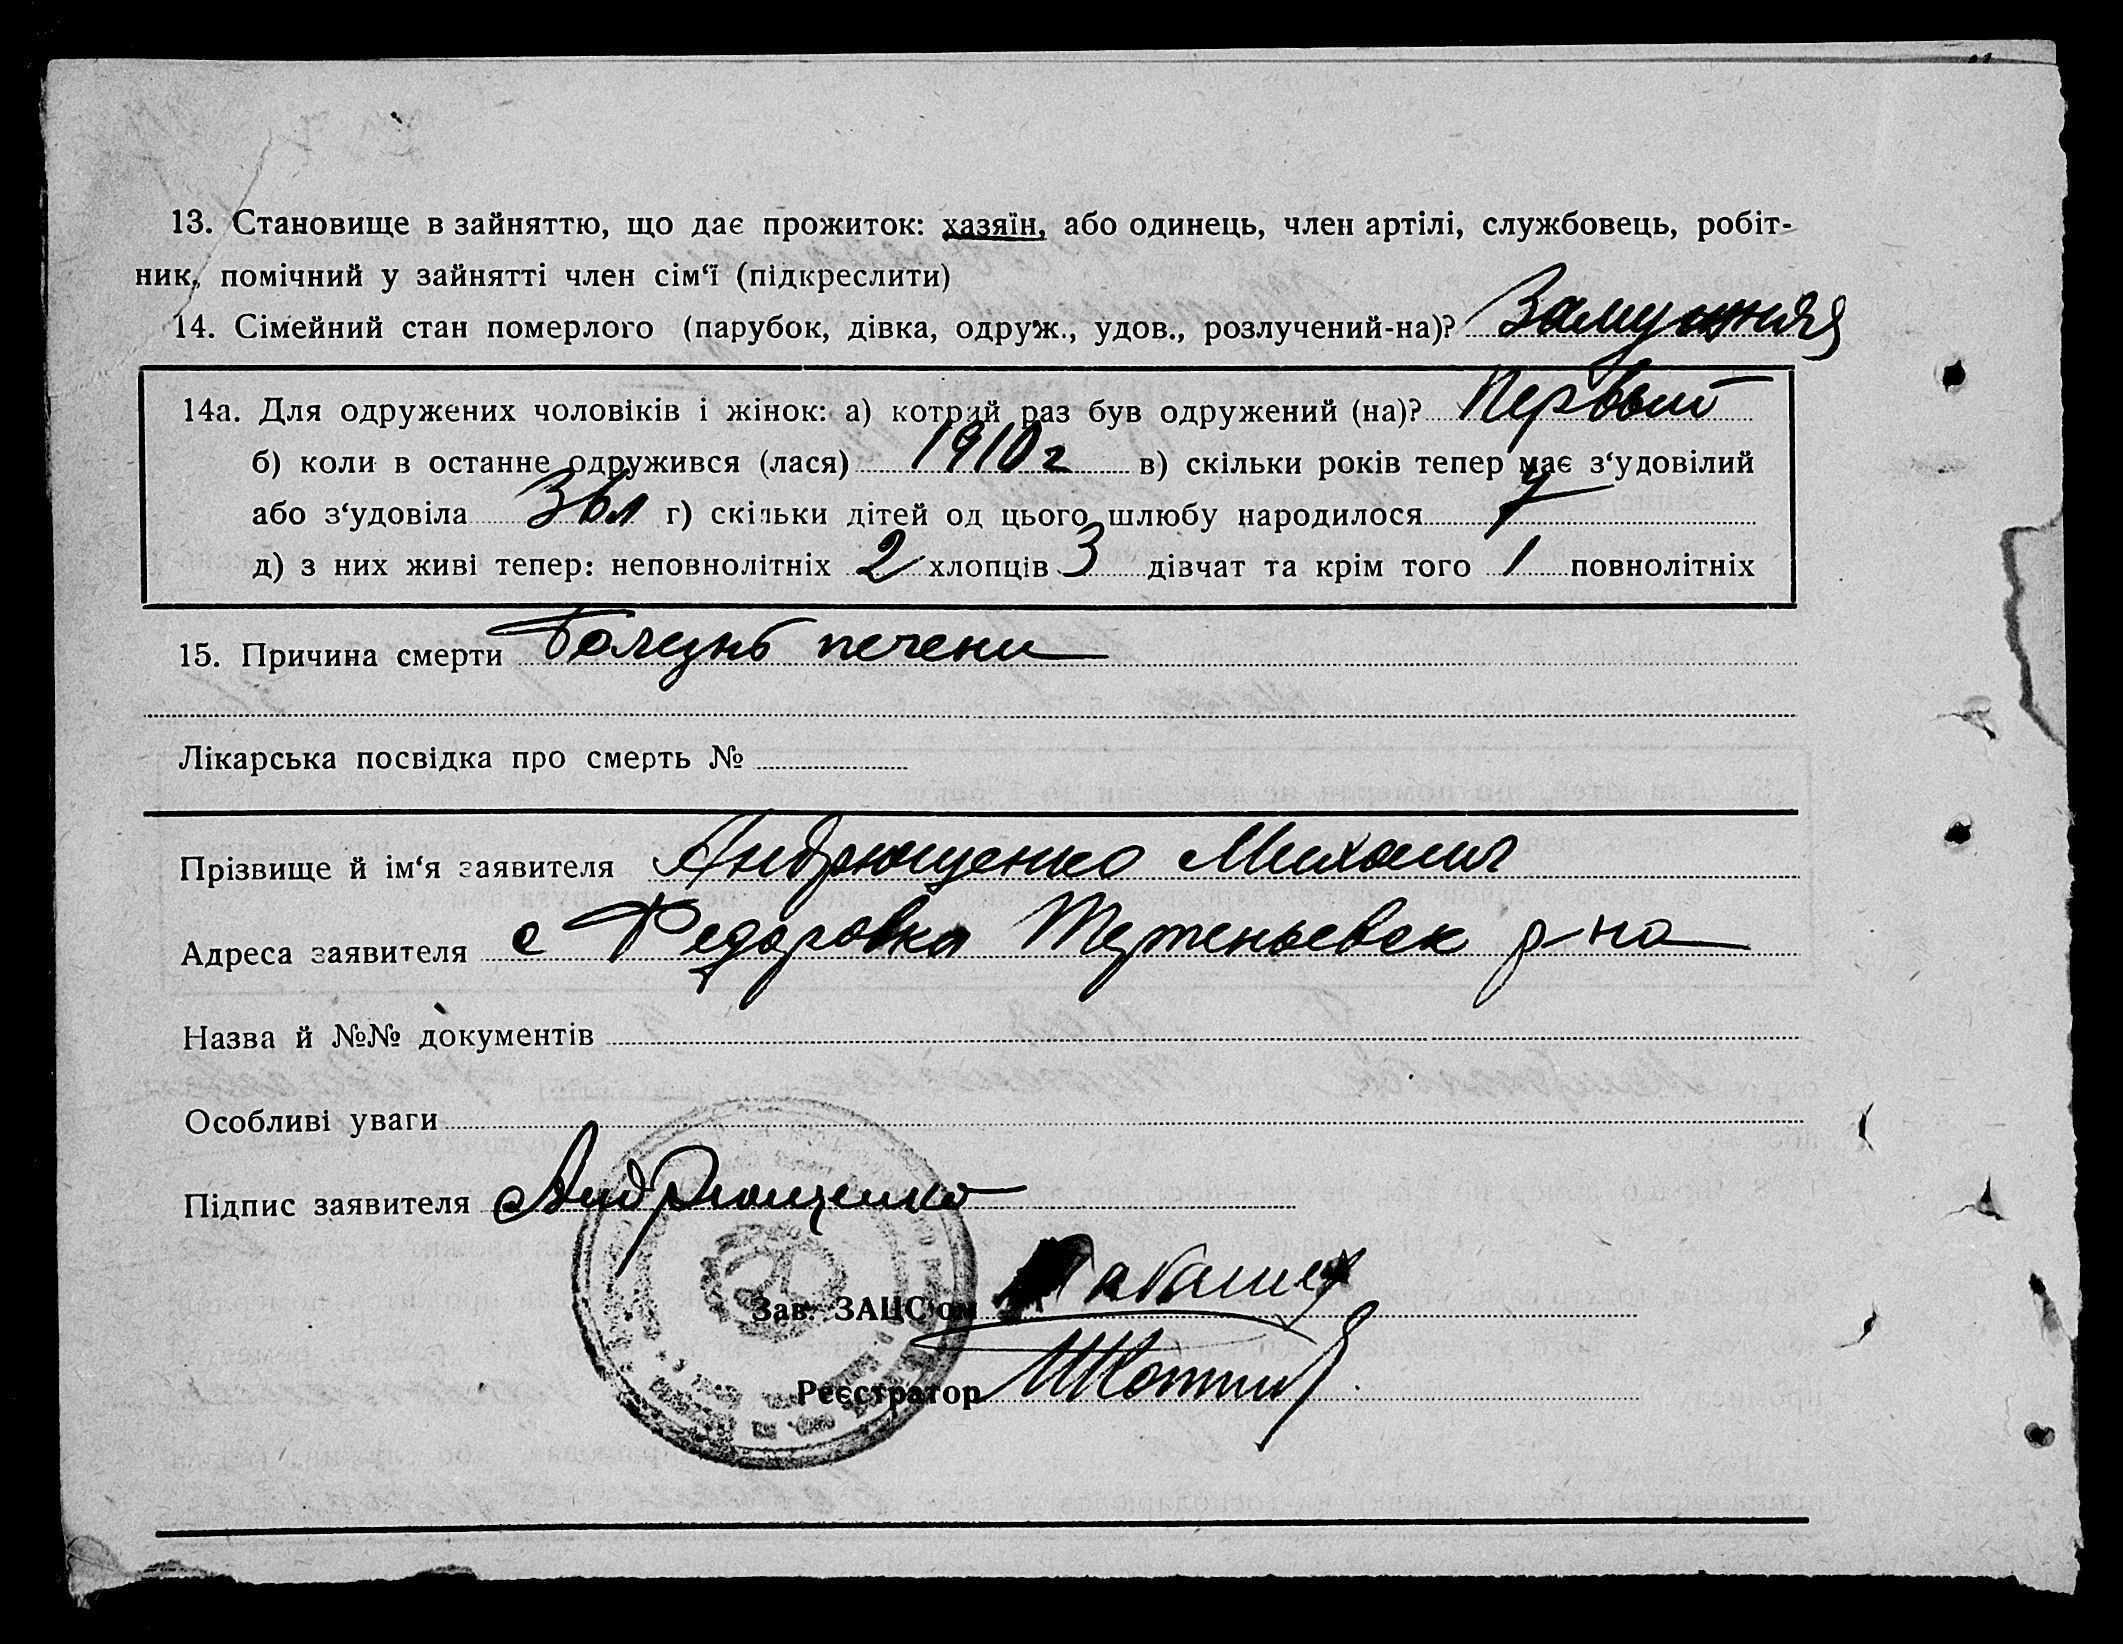 13. Становище в зайняттю, що дає прожиток: хазяїн, або одинець, член артілі, службовець, робіт-
ник, помічний у зайнятті член сім‘ї (підкреслити)
14. Сімейний стан померлого (парубок, дівка, одруж., удов., розлучений-на)? Замужняя
14а. Для одружених чоловіків і жінок: а) котрий раз був одружений (на)? Первый
б) коли в останне одружився (лася) 1910 г в) скільки років тепер має з‘удовілий
або з‘удовіла г) скільки дітей од цього шлюбу народилося
д) з них живі тепер: неповнолітніх 2 хлопців 3 дівчат та крім того 1 повнолітніх
15. Причина смерти Болезнь печени
Лікарська посвідка про смерть №
Прізвище й ім'я заявителя Андрющенко Михаил
Адреса заявителя с Федоровка р-на
Назва й №№ документів
Особливі уваги
Підпис заявителя Андрющенко
Зав. ЗАЦС'ом
Реєстратор